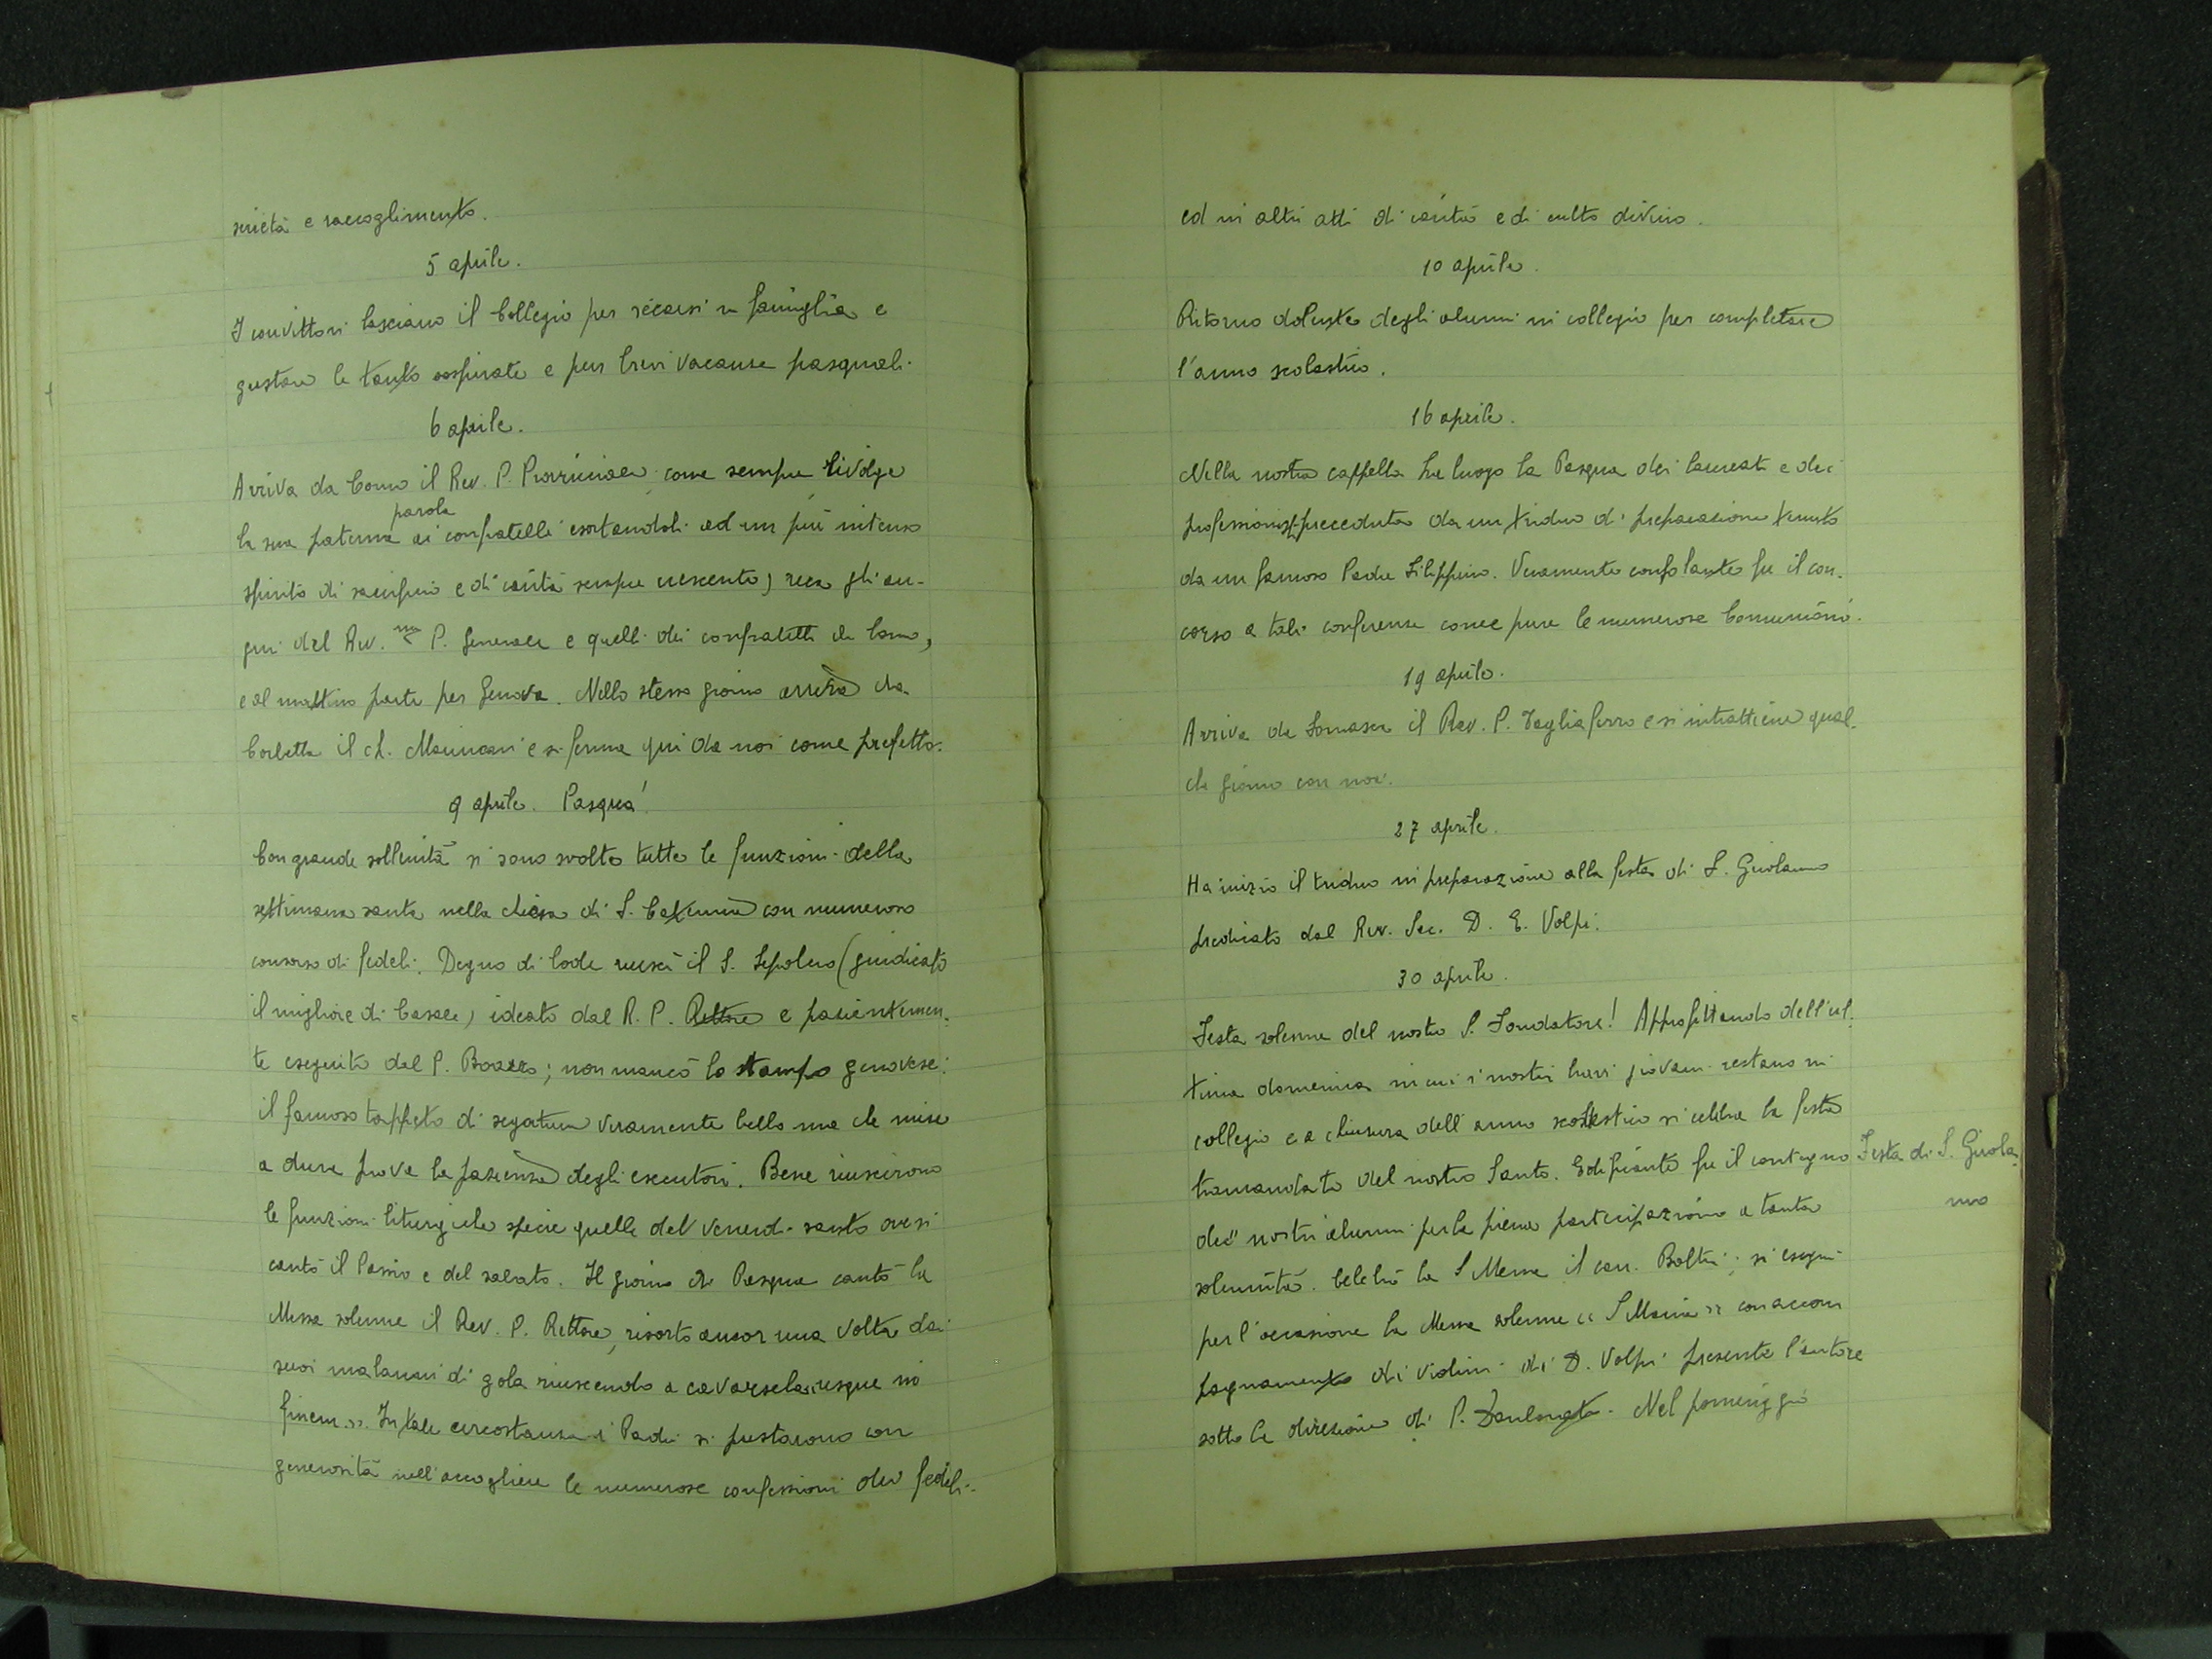 serietà e raccoglimento.
5 aprile.
I convittori lasciano il Collegio per recarsi in famiglia e
gustare le tanto sospirate e pur brevi vacanze pasquali.
6 aprile.
Arriva da Como il Rev. P. Provinciale come sempre rivolge
parola
la sua paterna ai confratelli esortandoli ad un più intenso
spirito di sacrificio e di carità sempre crescente, reca gli au-
guri del Rev.mo P. Generale e quelli dei confratelli di Como,
e al mattino parte per Genova. Nello stesso giorno arriva da
Corbetta il ch. e si ferma qui da noi come prefetto.
9 aprile. Pasqua!
Con grande sollenità si sono svolte tutte le funzioni della
settimana santa nella chiesa di S. Caterina con numeroso
concorso di fedeli. Degno di lode riuscì il S. Sepolcro (giudicato
il migliore di Casale) ideato dal R. P. Rettore e pazientemen-
te eseguito dal P. ; non mancò lo stampo genovese:
il famoso tappeto di segatura veramente bello ma che mise
a dura prova la pazienza degli esecutori. Bene riuscirono
le funzioni liturgiche specie quelle del venerdì santo ove si
cantò il Passio e del sabato. Il giorno di Pasqua cantò la
Messa solenne il Rev. P. Rettore, risorto ancor una volta dai
suoi malanni di gola riuscendo a cavarsela usque in
finem ». In tale circostanza i Padri si prestarono con
generosità nell'accogliere le numerose confessioni dei fedeli
ed in altri atti di carità e di culto divino.
10 aprile.
Ritorno degli alunni in collegio per completare
l'anno scolastico.
16 aprile.
Nella nostra cappella ha luogo la Pasqua dei laureati e dei
professionisti preceduta da un triduo di preparazione tenuto
da un famoso Padre Filippino. Veramente consolante fu il con-
corso a tali conferenze come pure le numerose Comunioni.
19 aprile.
Arriva da Somasca il Rev. P. Tagliaferro e si intrattiene qual-
che giorno con noi.
27 aprile.
Ha inizio il triduo in preparazione alla festa di S. Girolamo
predicato dal Rev. Sac. D. E. Volpi.
30 aprile.
Festa solenne del nostro S. Fondatore! Approfittando dell'ul-
tima domenica in cui i nostri bravi giovani restano in
collegio e a chiusura dell'anno scolastico si celebra la festa
tramandata del nostro Santo. Edificante fu il contegno
dei nostri alunni per la piena partecipazione a tanta
solennità. Celebrò la S Messa il can. ; si eseguì
per l'occasione la Messa solenne « S Maria » con accom
pagnamento di violini di D. Volpi presente l'autore
sotto la direzione di P. . Nel pomeriggio
Festa di S. Girola-
mo